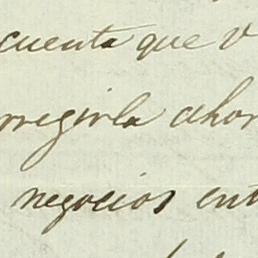 cuenta que V
rregirla ahor
negocios ent